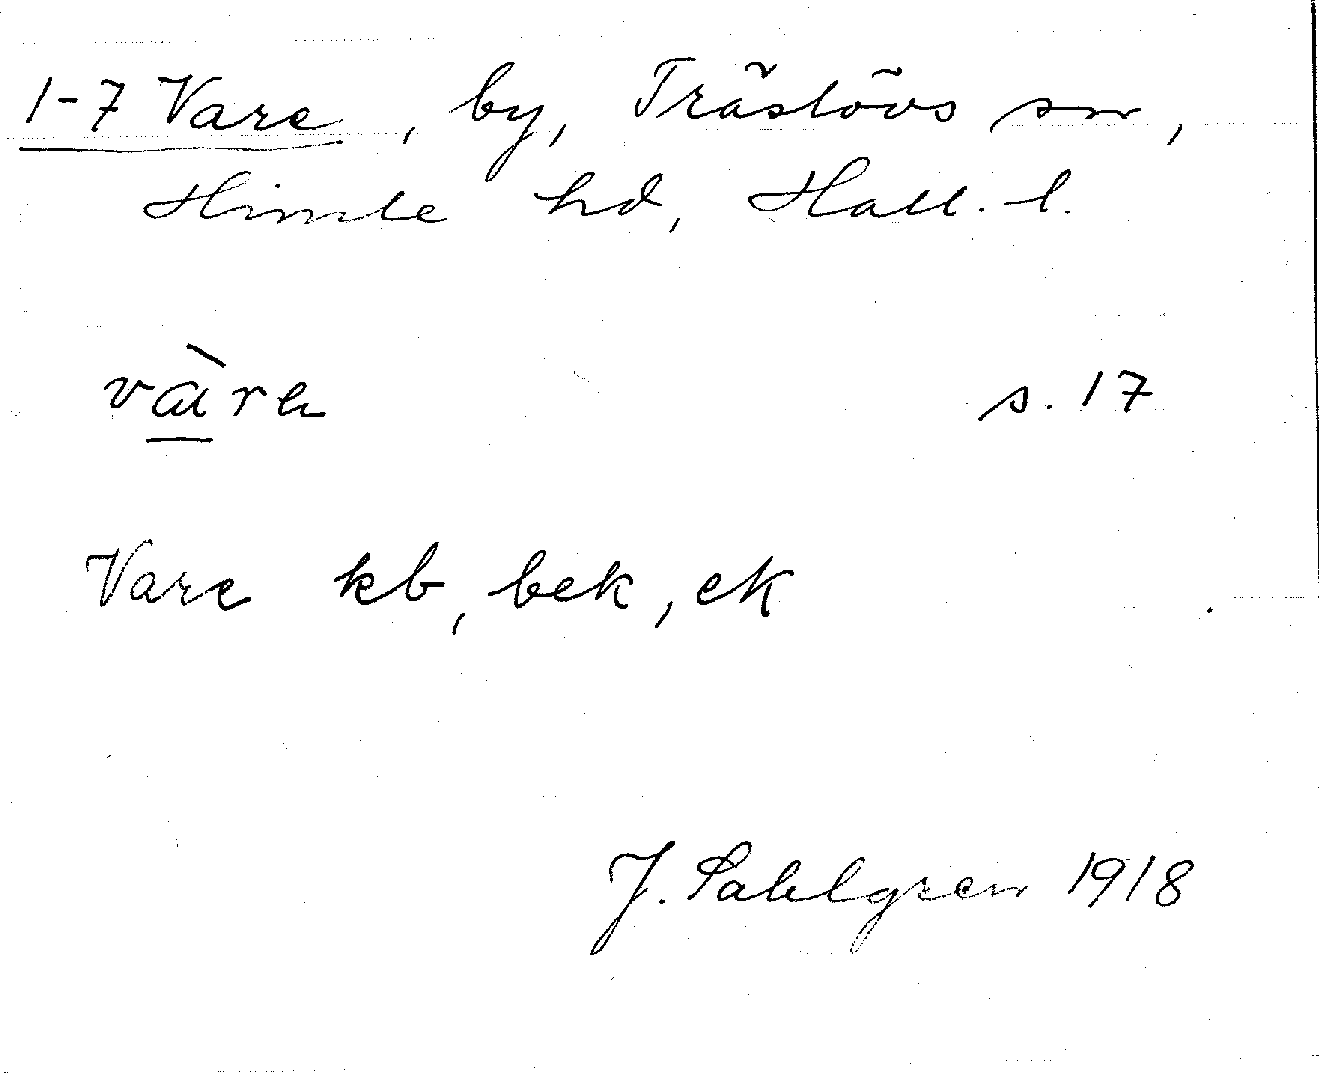 1-7 Vare, by, Träslövs sn,
Himle hd, Hall. l.
và̱rə s. 17
Vare kb, bek, ek
J. Sahlgren 1918